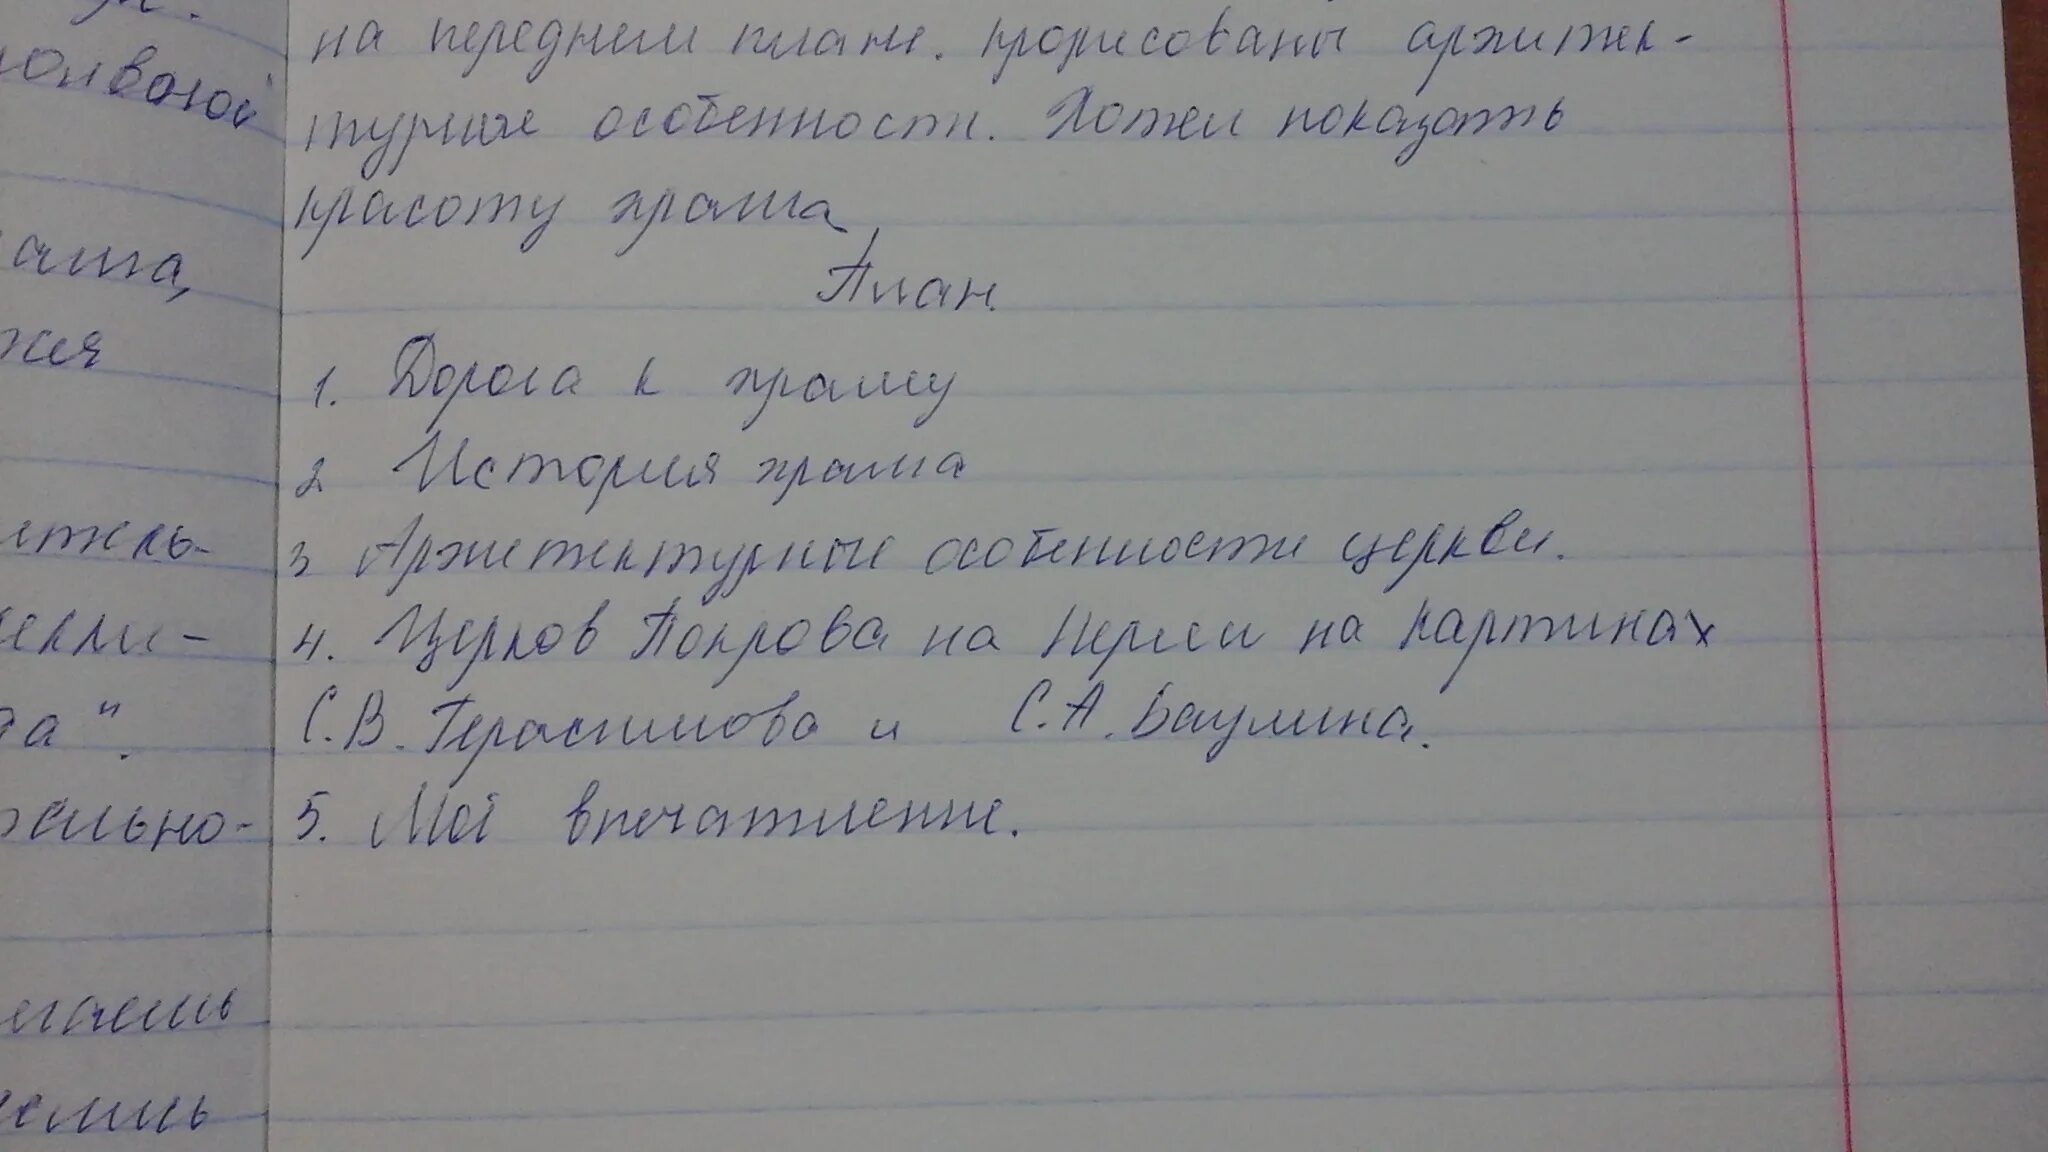 на переднем плане. прорисованы архитек-
турные особенности. Хотел показать
красоту храма
План.
1. Дорога к храму
2 История храма
3 Архитектурные особенности церкви.
4. Церков Покрова на Нерли на картинах
С.В. Герасимова и С.А. Баулина.
5. Моё впечатление.